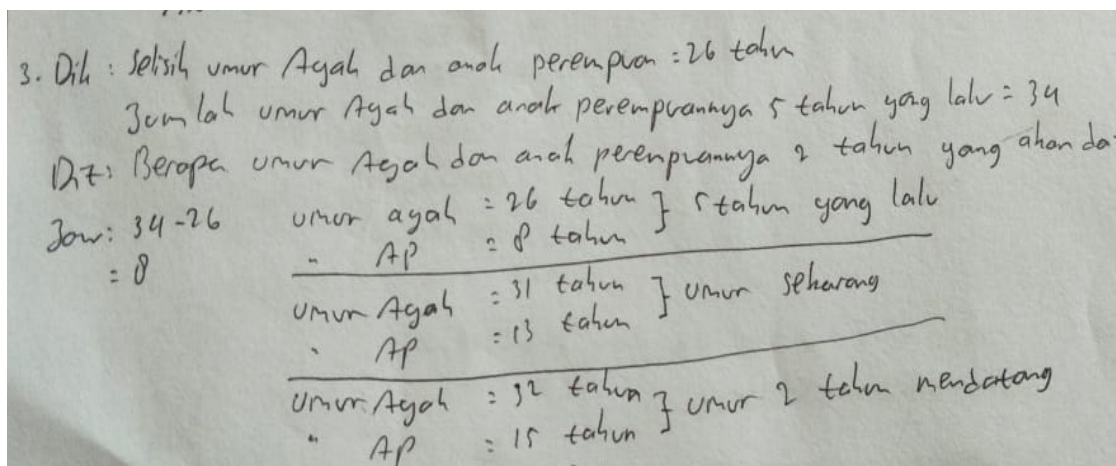 3. Dik : Selisih umur Ayah dan anak perempuan = 26 tahun
Jumlah umur Ayah dan anak perempuannya 5 tahun yang lalu = 34
Dit: Berapa umur Ayah dan anak perempuannya 2 tahun yang akan da
Jaw: 34-26 umur ayah = 26 tahun } 5 tahun yang lalu
= 8 " AP = 8 tahun
Umur Ayah = 31 tahun } umur sekarang
" AP = 13 tahun
Umur Ayah = 32 tahun } umur 2 tahun mendatang
" AP = 15 tahun